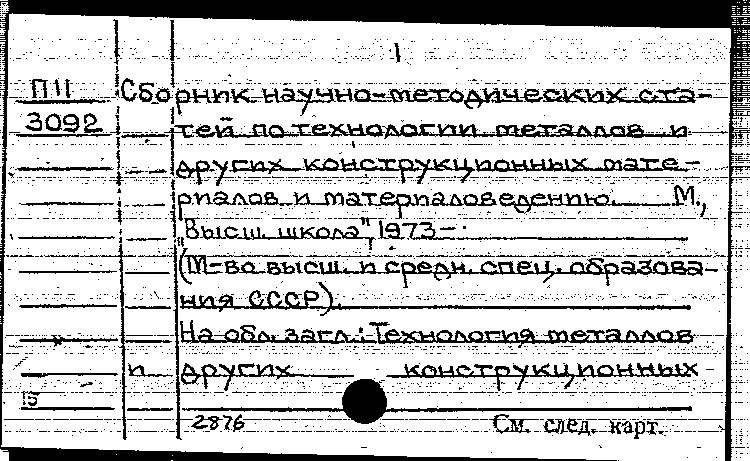 1
П11 Сборник научно-методических ста-
3092 тей по технологии металлов и
других конструкционных мате-
риалов и материаловедению. М.,
"Высш. школа", 1973-.
(М-во высш. и средн. спец. образова-
ния СССР).
На обл. загл.: Технология металлов
и других конструкционных
15
2876 См. след. карт.